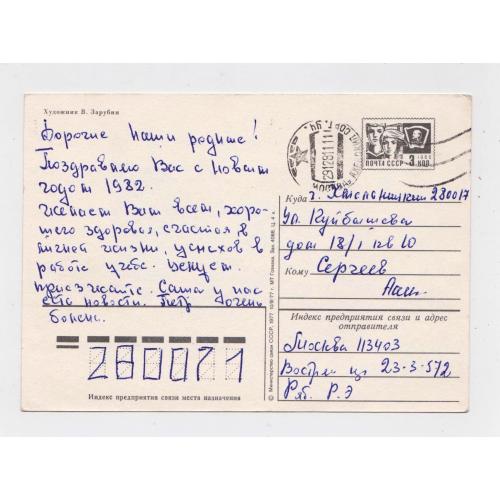 Художник В. Зарубин
Дорогие Наши родные!
Поздравляю Вас с Новым
годом 1982.
Желаем Вам всем, хоро-
шего здоровья, счастья в
личной жизни, успехов в
работе учебе. Целуем.
приезжайте. Саша у нас
есть новости. Петр очень
болен.
ПОЧТА СССР
3 КОП
1966
Куда г. 280017
ул. Куйбышева
дом 18/1 кв 10
Кому Сергеев
Индекс предприятия связи и адрес
отправителя
Москва 113403
23-3-572
Ряб. Р.Э
280071
Индекс предприятия связи места назначения
© Министерство связи СССР, 1977